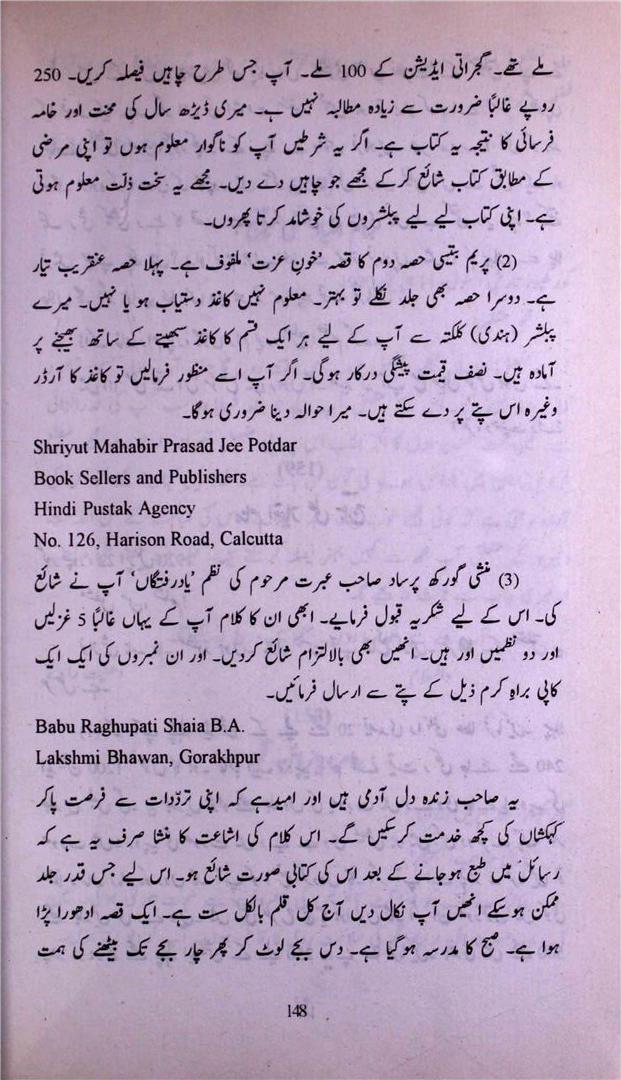 ملے تھے۔ گجراتی ایڈیشن کے 100 ملے۔ آپ جس طرح چاہیں فیصلہ کریں۔ 250
روپے غالباً ضرورت سے زیادہ مطالبہ نہیں ہے۔ میری ڈیڑھ سال کی محنت اور خامہ
فرسائی کا نتیجہ یہ کتاب ہے۔ اگر یہ شرطیں آپ کو ناگوار معلوم ہوں تو اپنی مرضی
کے مطابق کتاب شائع کرکے مجھے جو چاہیں دے دیں۔ مجھے یہ سخت ذلت معلوم ہوتی
ہے۔ اپنی کتاب لیے لیے پبلشروں کی خوشامد کرتا پھروں۔
(2) پریم بتیسی حصہ دوم کا قصہ ’خونِ عزت‘ ملفوف ہے۔ پہلا حصہ عنقریب تیار
ہے۔ دوسرا حصہ بھی جلد نکلے تو بہتر۔ معلوم نہیں کاغذ دستیاب ہو یا نہیں۔ میرے
پبلشر (ہندی) کلکتہ سے آپ کے لیے ہر ایک قسم کا کاغذ سمیٹے کے ساتھ بھیجنے پر
آمادہ ہیں۔ نصف قیمت پیشگی درکار ہوگی۔ اگر آپ اسے منظور فرمالیں تو کاغذ کا آرڈر
وغیرہ اس پتے پر دے سکتے ہیں۔ میرا حوالہ دینا ضروری ہوگا۔
Shriyut Mahabir Prasad Jee Potdar
Book Sellers and Publishers
Hindi Pustak Agency
No. 126, Harison Road, Calcutta
(3) منشی گورکھ پرساد صاحب عبرت مرحوم کی نظم ’یادِ رفتگاں‘ آپ نے شائع
کی۔ اس کے لیے شکریہ قبول فرمایے۔ ابھی ان کا کلام آپ کے یہاں غالباً 5 غزلیں
اور دو نظمیں اور ہیں۔ انھیں بھی بالالتزام شائع کردیں۔ اور ان نمبروں کی ایک ایک
کاپی براہِ کرم ذیل کے پتے سے ارسال فرمائیں۔
Babu Raghupati Shaia B.A.
Lakshmi Bhawan, Gorakhpur
یہ صاحب زندہ دل آدمی ہیں اور امید ہے کہ اپنی تردّدات سے فرصت پاکر
کہکشاں کی کچھ خدمت کرسکیں گے۔ اس کلام کی اشاعت کا منشا صرف یہ ہے کہ
رسائل میں طبع ہوجانے کے بعد اس کی کتابی صورت شائع ہو۔ اس لیے جس قدر جلد
ممکن ہوسکے انھیں آپ نکال دیں آج کل قلم بالکل سست ہے۔ ایک قصہ ادھورا پڑا
ہوا ہے۔ صبح کا مدرسہ ہوگیا ہے۔ دس بجے لوٹ کر پھر چار بجے تک بیٹھنے کی ہمت
148